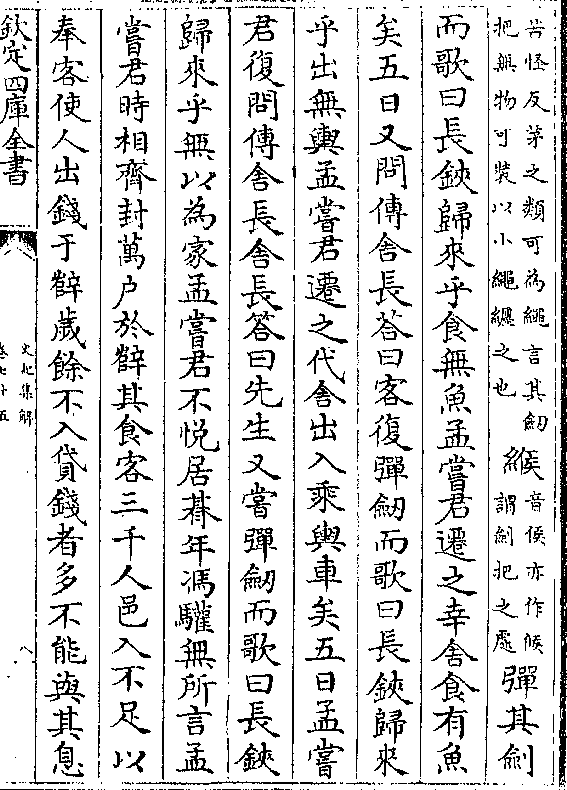 苦怪反茅之類可為繩言其劒
把無物可裝以小繩纒之也
緱
音侯亦作候
謂劒把之處
彈其劍
而歌曰長鋏歸來乎食無魚孟嘗君遷之幸舍食有魚
矣五日又問傳舍長荅曰客復彈劒而歌曰長鋏歸來
乎出無輿孟嘗君遷之代舍出入乘輿車矣五日孟嘗
君復問傳舍長舍長答曰先生又嘗彈劒而歌曰長鋏
歸來乎無以為家孟嘗君不悦居朞年馮驩無所言孟
嘗君時相齊封萬户於薛其食客三千人邑入不足以
奉客使人出錢于薛歲餘不入貸錢者多不能與其息
欽定四庫全書
史記集解
卷七十五
八